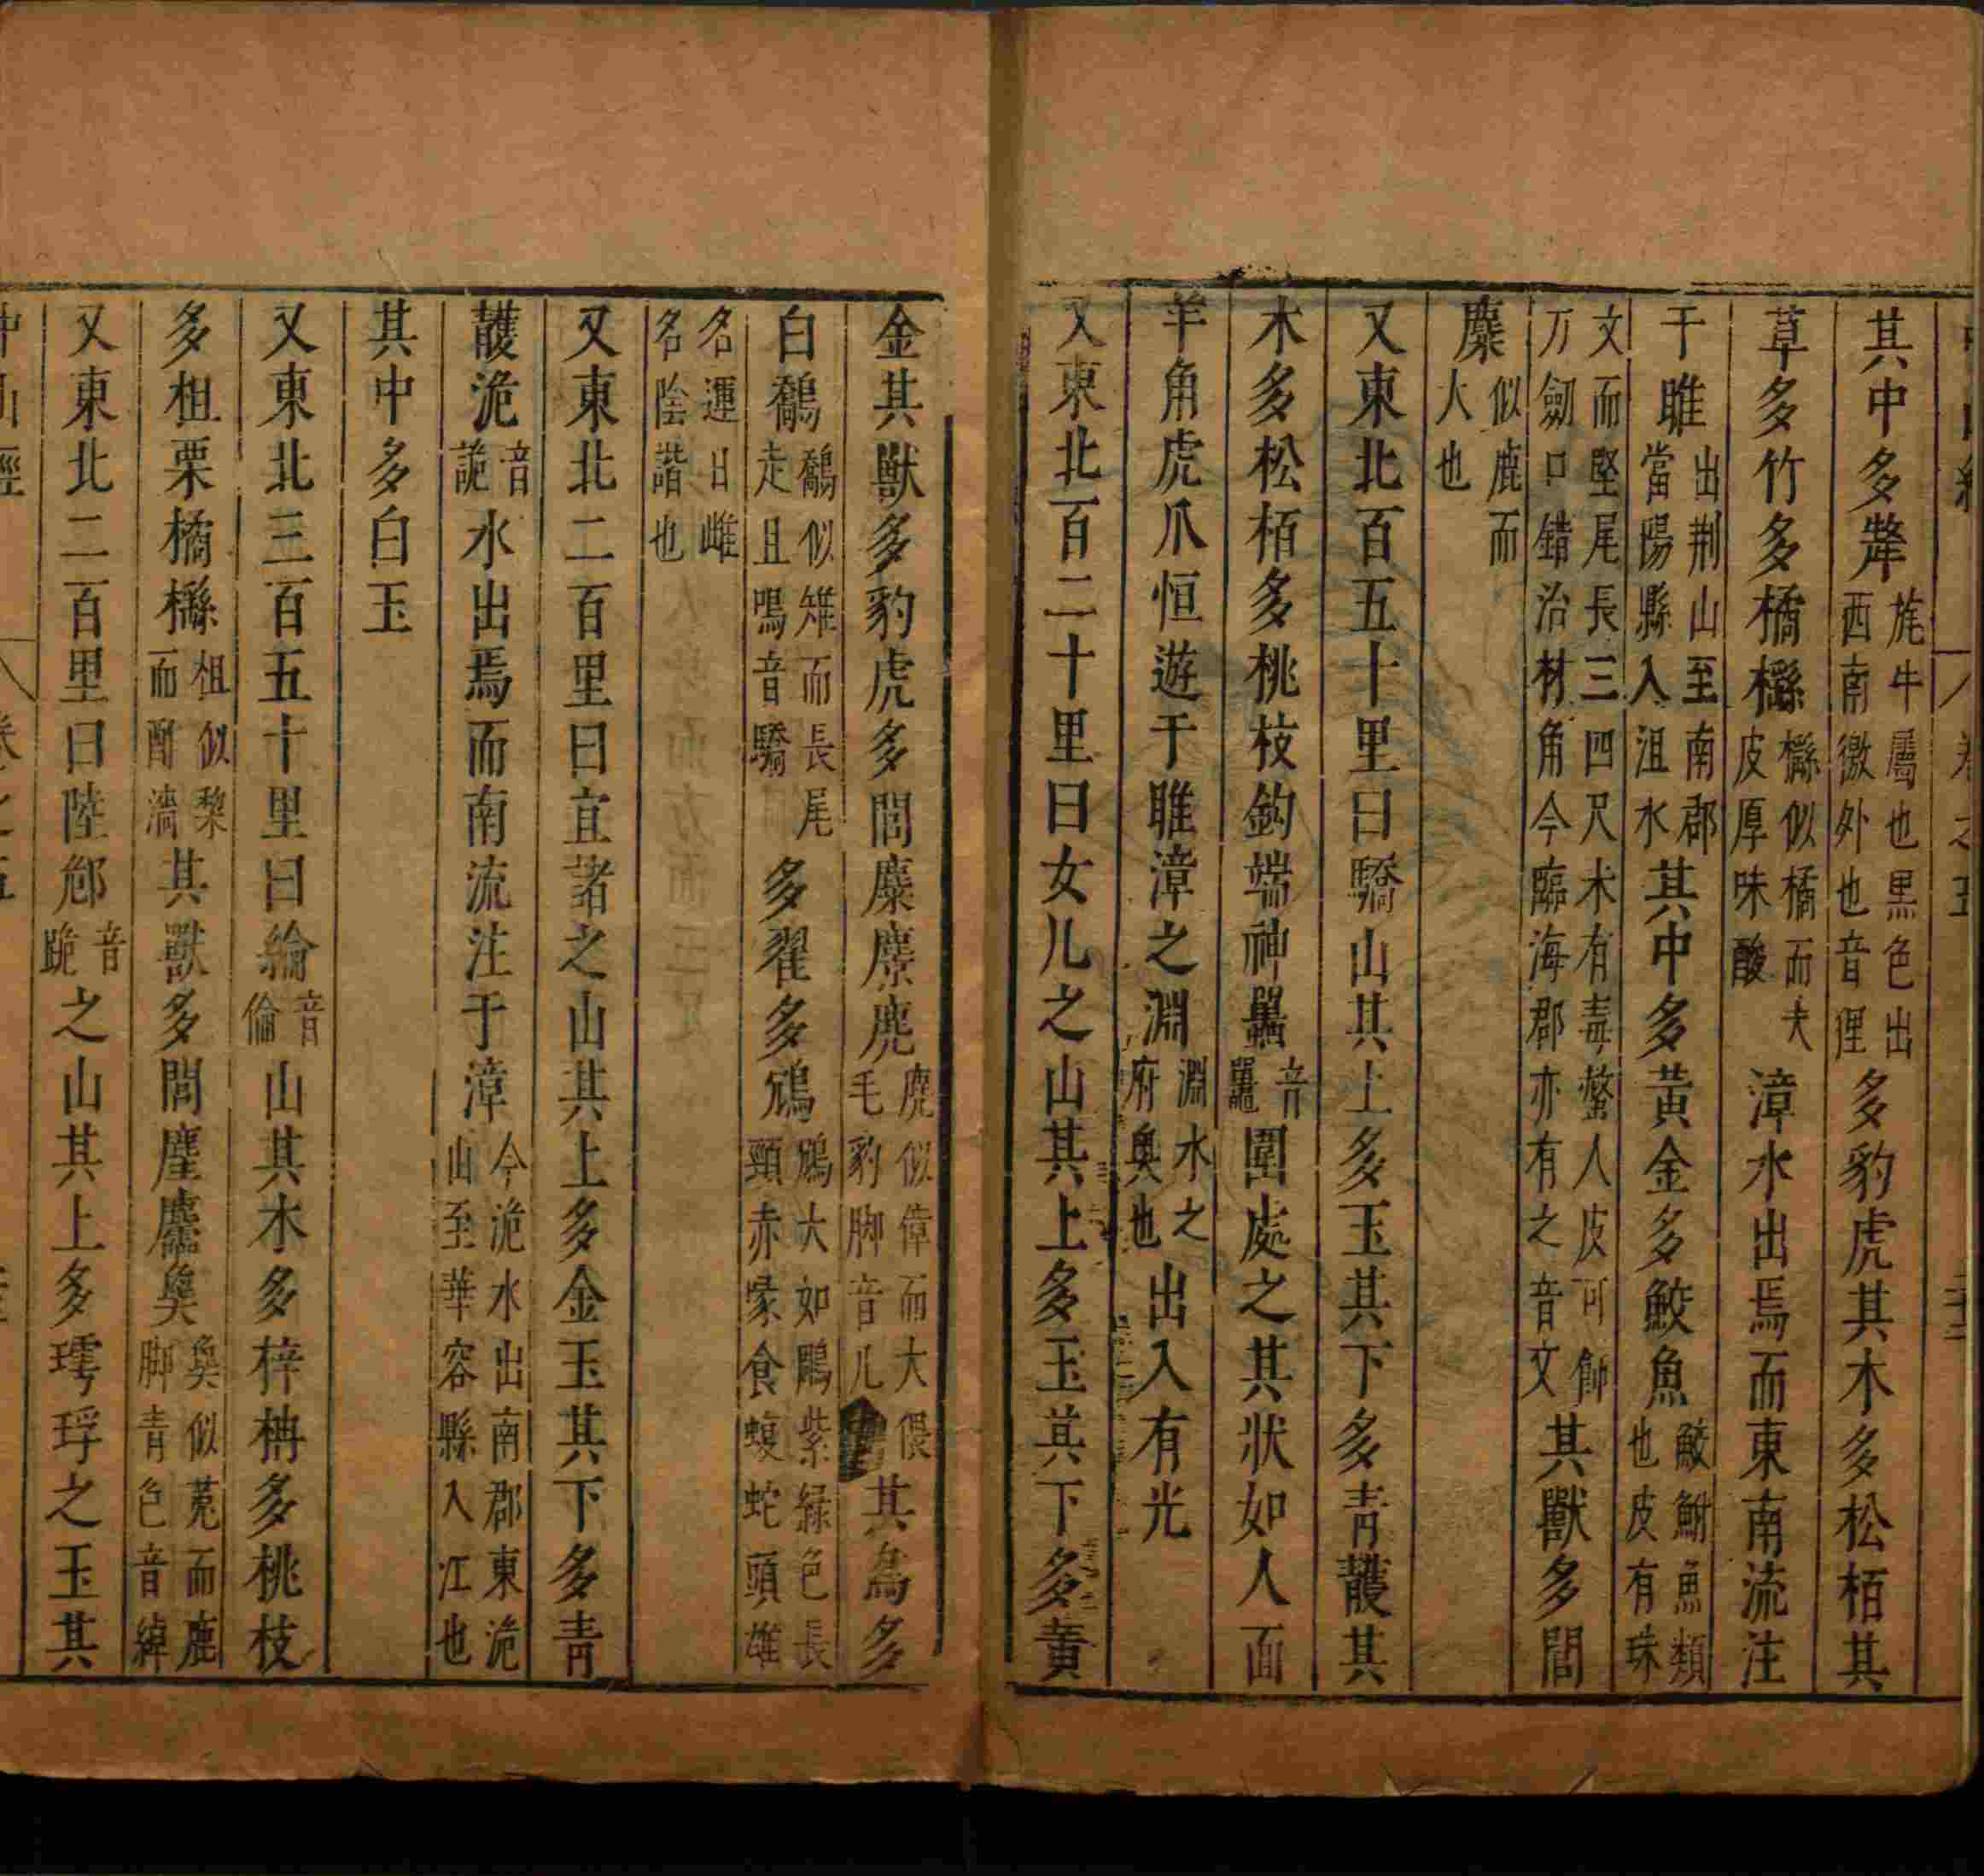 其中多犛旄牛屬也黒色出西南徼外也音狸多豹虎其木多松栢其
草多竹多橘櫾櫾似橘而大皮厚味酸漳水出焉而東南流注
于睢出荆山至南郡當陽縣入沮水其中多黃金多鮫魚鮫鮒魚類也皮有珠
文而堅尾長三四尺末有毒螫人皮可飾刀劒口錯治材角今臨海郡亦有之音交其獸多閭
麋似鹿而大也
又東北百五十里曰驕山其上多玉其下多青雘其
木多松栢多桃枝鈎端神䰠音鼉圍處之其狀如人面
羊角虎爪恒遊于睢漳之淵淵水之府奥也出入有光
又東北百二十里曰女几之山其上多玉其下多黃
金其獸多豹虎多閭麋麖麂麂似獐而大偎毛豹脚音几其鳥多
白鷮鷮似雉而長尾走且鳴音驕多翟多鴆鴆大如鵰紫緑色長頸赤喙食蝮蛇頭雄
名運日雌名陰諧也
又東北二百里曰宜諸之山其上多金玉其下多青
雘洈音詭水出焉而南流注于漳今洈水出南郡東洈山至華容縣入江也
其中多白玉
又東北三百五十里曰綸音倫山其木多梓枏多桃枝
多柤栗橘櫾柤似棃而酢濇其獸多閭麈麢㚟㚟似菟而鹿脚青色音綽
又東北二百里曰陸郁音跪之山其上多㻬琈之玉其